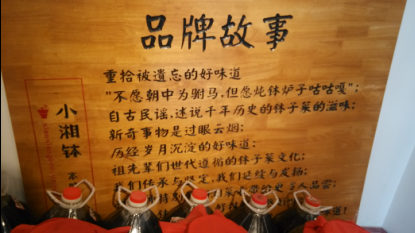 品牌故事
重拾被遗忘的好味道
"不愿朝中为驸马,但愿炖钵炉子咕咕嘎";
自古民谣,述说千年历史的钵子菜的滋味;
新奇事物是过眼云烟;
历经岁月沉淀的好味道;
祖先辈们世代遵循的钵子菜文化;
们传承与坚定,我们延续与发扬;
小湘钵